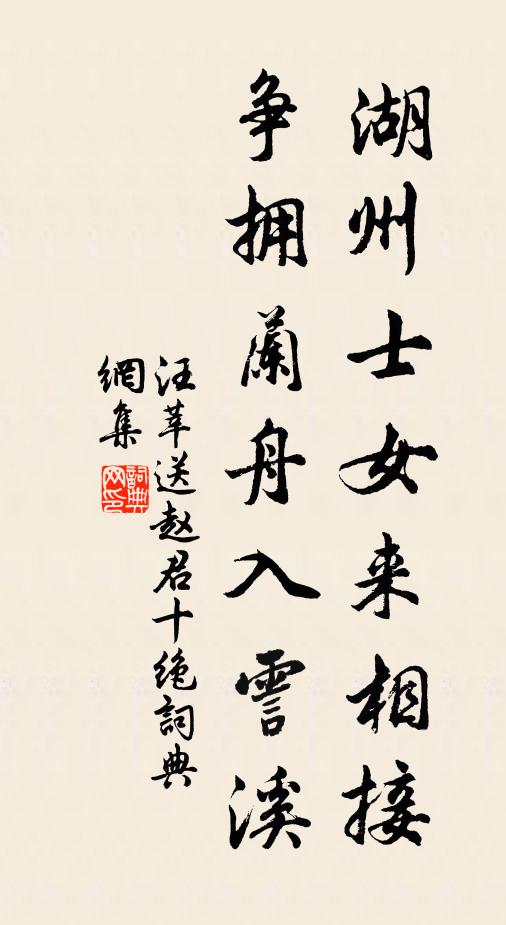 湖州士女来相接
争拥蘭舟入霅溪
汪莘送赵君十绝詞典
網集
詞典
网印